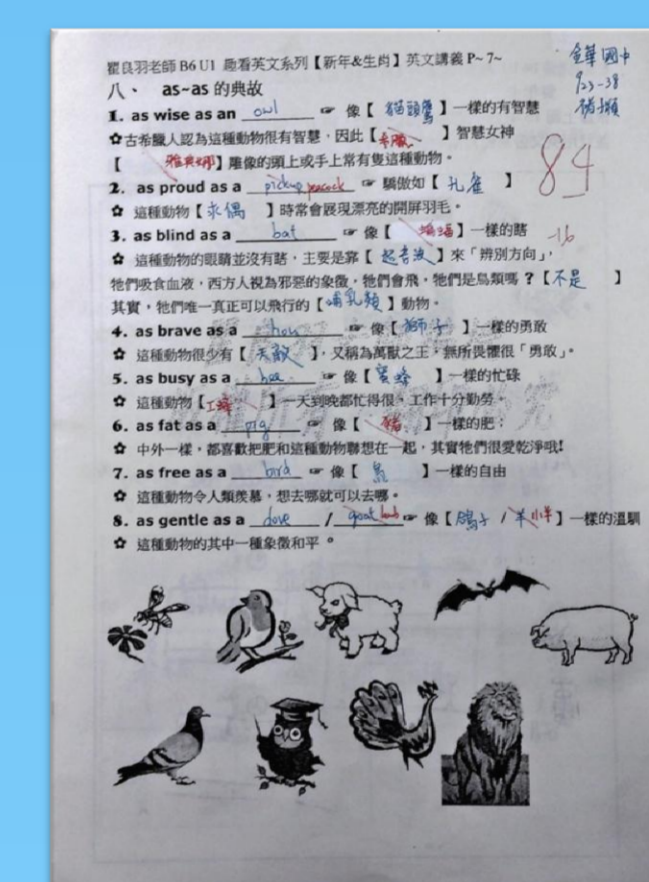 瞿良羽老師 B6 U1 趣看英文系列【新年&生肖】英文講義 P~ 7~
金華國中
923-38
八、 as~as 的典故
1. as wise as an owl ☞ 像【 貓頭鷹 】一樣的有智慧
✩古希臘人認為這種動物很有智慧，因此【 】智慧女神
【 雅典娜】雕像的頭上或手上常有隻這種動物。
84
2. as proud as a pickup peacock ☞ 驕傲如【 孔雀 】
✩ 這種動物【求偶 】時常會展現漂亮的開屏羽毛。
3. as blind as a bat ☞ 像【 蝙蝠 】一樣的瞎 -16
✩ 這種動物的眼睛並沒有瞎，主要是靠【 超音波 】來「辨別方向」，
牠們吸食血液，西方人視為邪惡的象徵，牠們會飛，牠們是鳥類嗎？【不是 】
其實，牠們唯一真正可以飛行的【哺乳類 】動物。
4. as brave as a lion ☞ 像【 獅子 】一樣的勇敢
✩ 這種動物很少有【 天敵 】，又稱為萬獸之王，無所畏懼很「勇敢」。
5. as busy as a bee ☞ 像【 蜜蜂 】一樣的忙碌
✩ 這種動物【工蜂 】一天到晚都忙得很，工作十分勤勞。
6. as fat as a pig ☞ 像【 豬 】一樣的肥；
✩ 中外一樣，都喜歡把肥和這種動物聯想在一起，其實牠們很愛乾淨哦!
7. as free as a bird ☞ 像【 鳥 】一樣的自由
✩ 這種動物令人類羨慕，想去哪就可以去哪。
8. as gentle as a dove / goat lamb ☞ 像【 鴿子 / 羊 小羊】一樣的溫馴
✩ 這種動物的其中一種象徵和平。